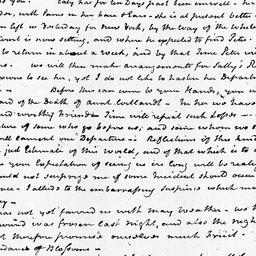 you. Caty has for ten Days past been unwell - her
, with pains in her knee & Ears - she is at present better
left us Yesterday for New York, by the way of the White
Court is now sitting, and where he expected to find Peter
to return in about a week, and by that Time Peter wi
we will then make arrangements for Sally's R
to see her, yet I do not like to hasten her Depart
Before this can come to your Hands, you w
of the Death of aunt Cortlandt - In her we have
and worthy Friend - Time will repair such Losses -
of some who go before us, and some whom we
lament our Departure - Reflections of this kind
just Estimate of this world, and of that which is to c
your Expectation of seeing us ere long will be realiz
not surprize me if some Incident should occur
- I allude to the embarrassing Suspence which ma
not yet favored us with may Weather - we h
was frozen last night, and also the nigh
therefore promise ourselves much Fruit -
of Blossoms -